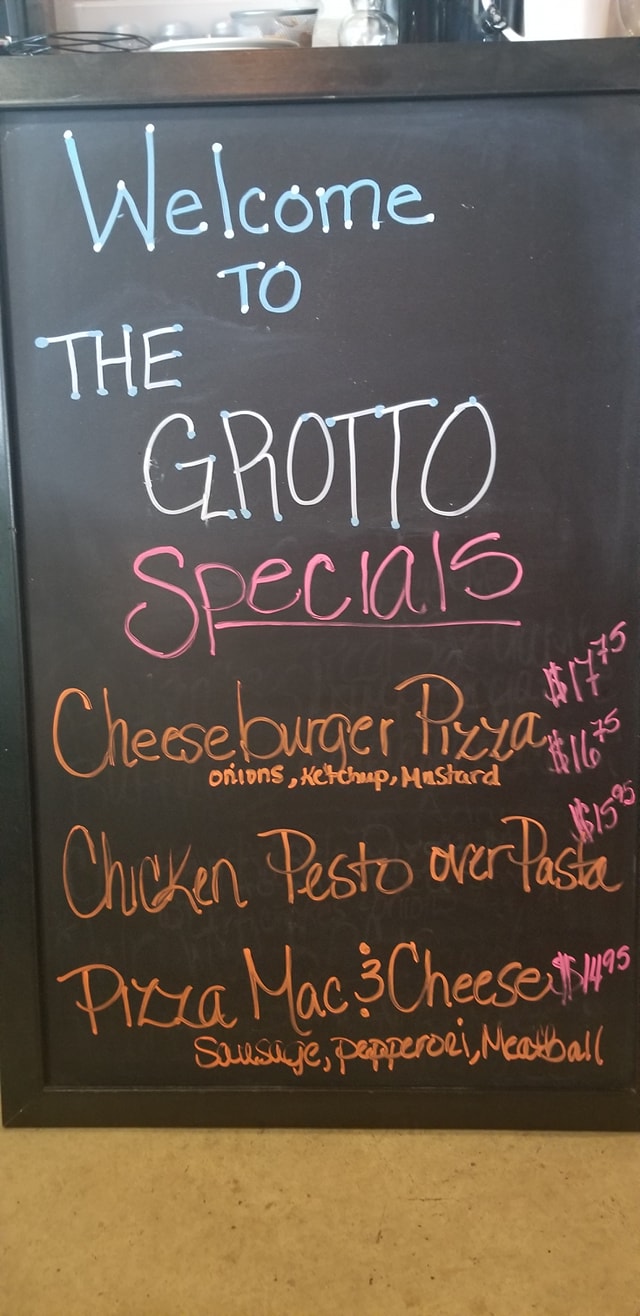 Welcome
TO
THE
GROTTO
Specials
$17.75
Cheeseburger Pizza $16.75
onions, Ketchup, Mustard
$15.95
Chicken Pesto over Pasta
Pizza Mac & Cheese $14.95
Sausage, pepperoni, Meatball